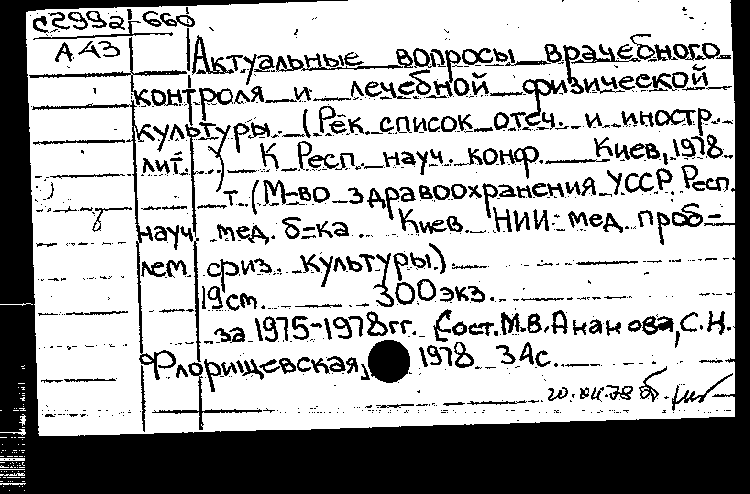 С2992-660
А 43
Актуальные вопросы врачебного
контроля и лечебной физической
культуры. (Рек. список отеч. и иностр.
лит.) К Респ. науч. конф. Киев, 1978
т. (М-во здравоохранения УССР Респ.
науч. мед. б-ка. Киев. НИИ мед. проб-
лем физ. культуры.)
19 см. 300 экз.
за 1975-1978 гг. [Сост. М.В. Ананова, С.Н.
Флорищевская] 1978 34 с.